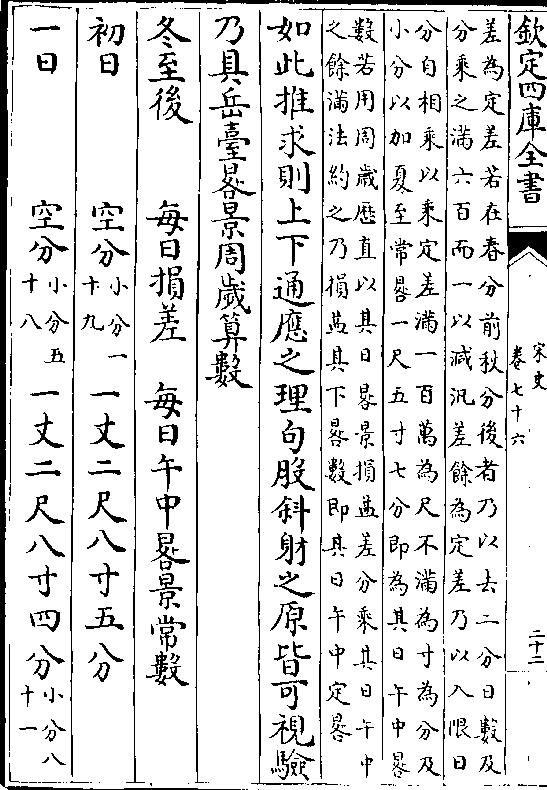 欽定四庫全書
宋史
卷七十六
二十二
差為定差若在春分前秋分後者乃以去二分日數及
分乘之滿六百而一以減汎差餘為定差乃以入限日
分自相乘以乘定差滿一百萬為尺不滿為寸為分及
小分以加夏至常晷一尺五寸七分即為其日午中晷
數若用周歲厯直以其日晷景損益差分乘其日午中
之餘滿法約之乃損益其下晷數即其日午中定晷
如此推求則上下通應之理句股斜射之原皆可視驗
乃具岳臺晷景周歲算數
冬至後 每日損差 每日午中晷景常數
初日 空分小分一十九 一丈二尺八寸五分
一日 空分小分五十八 一丈二尺八寸四分小分八十一